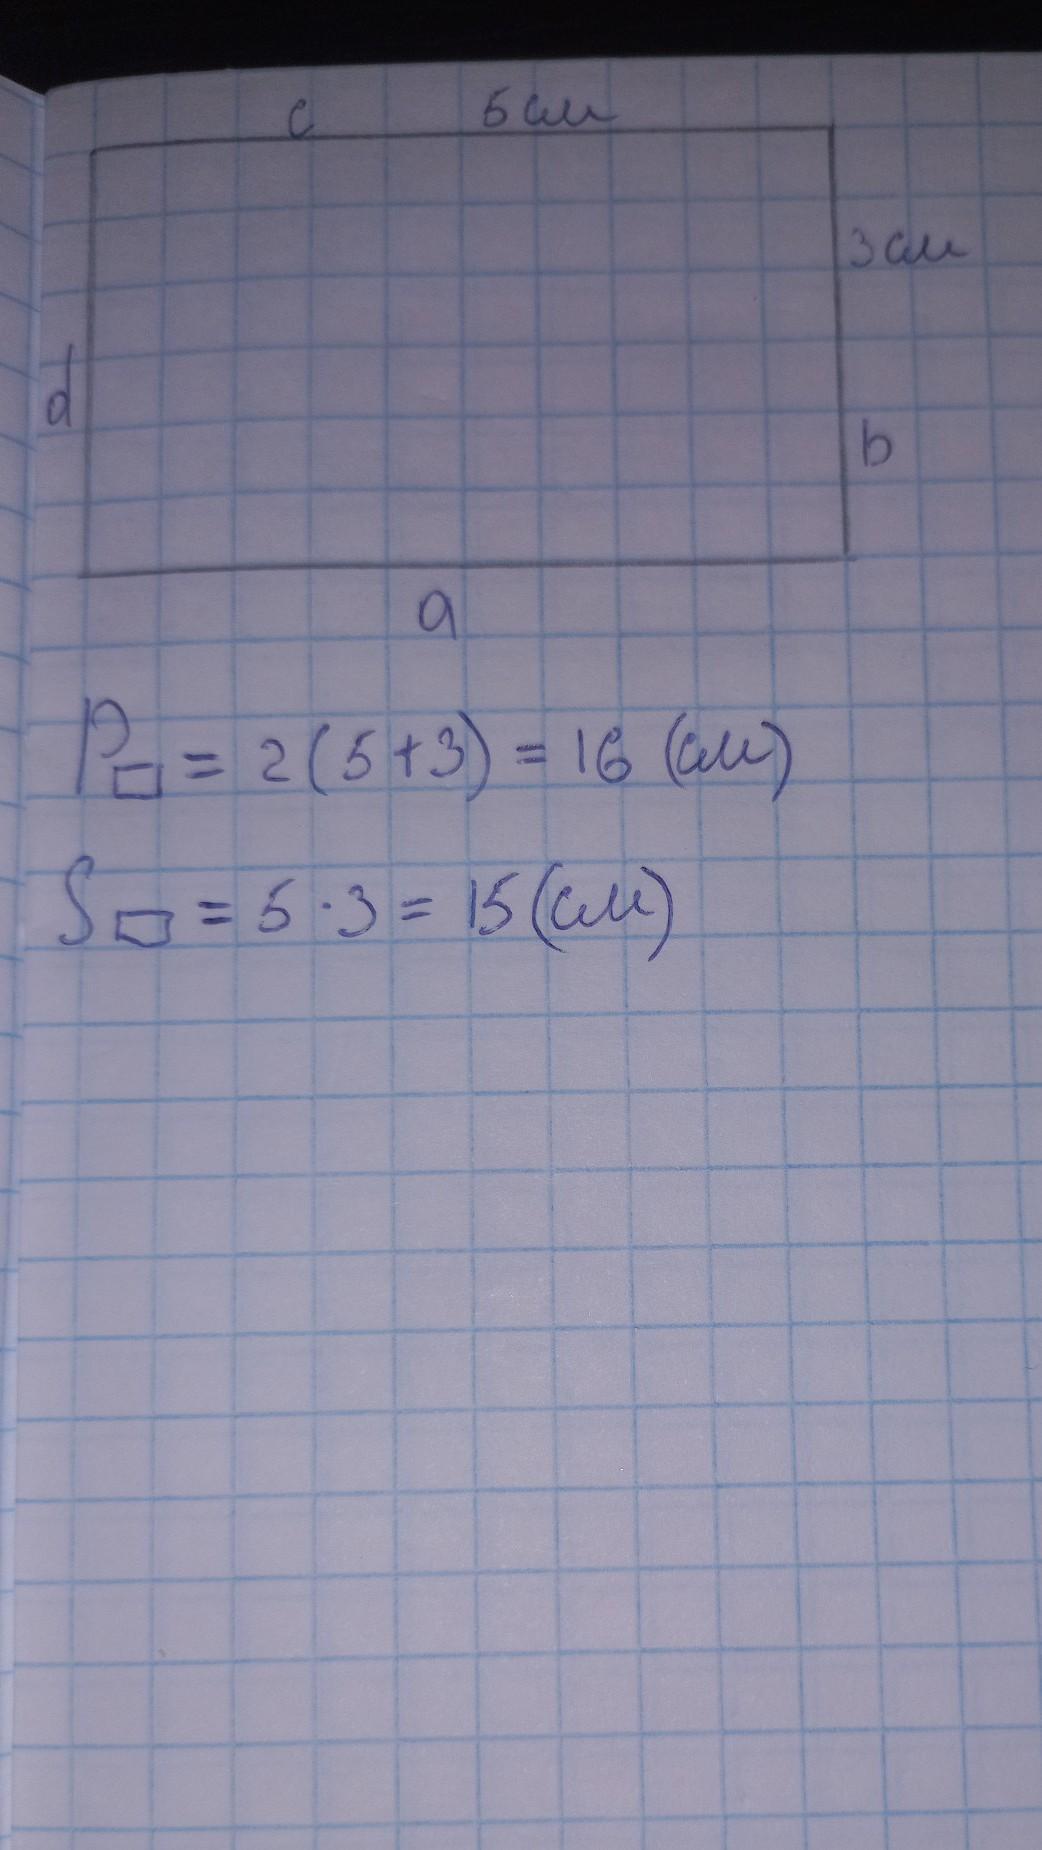 c 5 см
3 см
d
b
a
P▭ = 2(5+3) = 16 (см)
S▭ = 5·3 = 15(см)